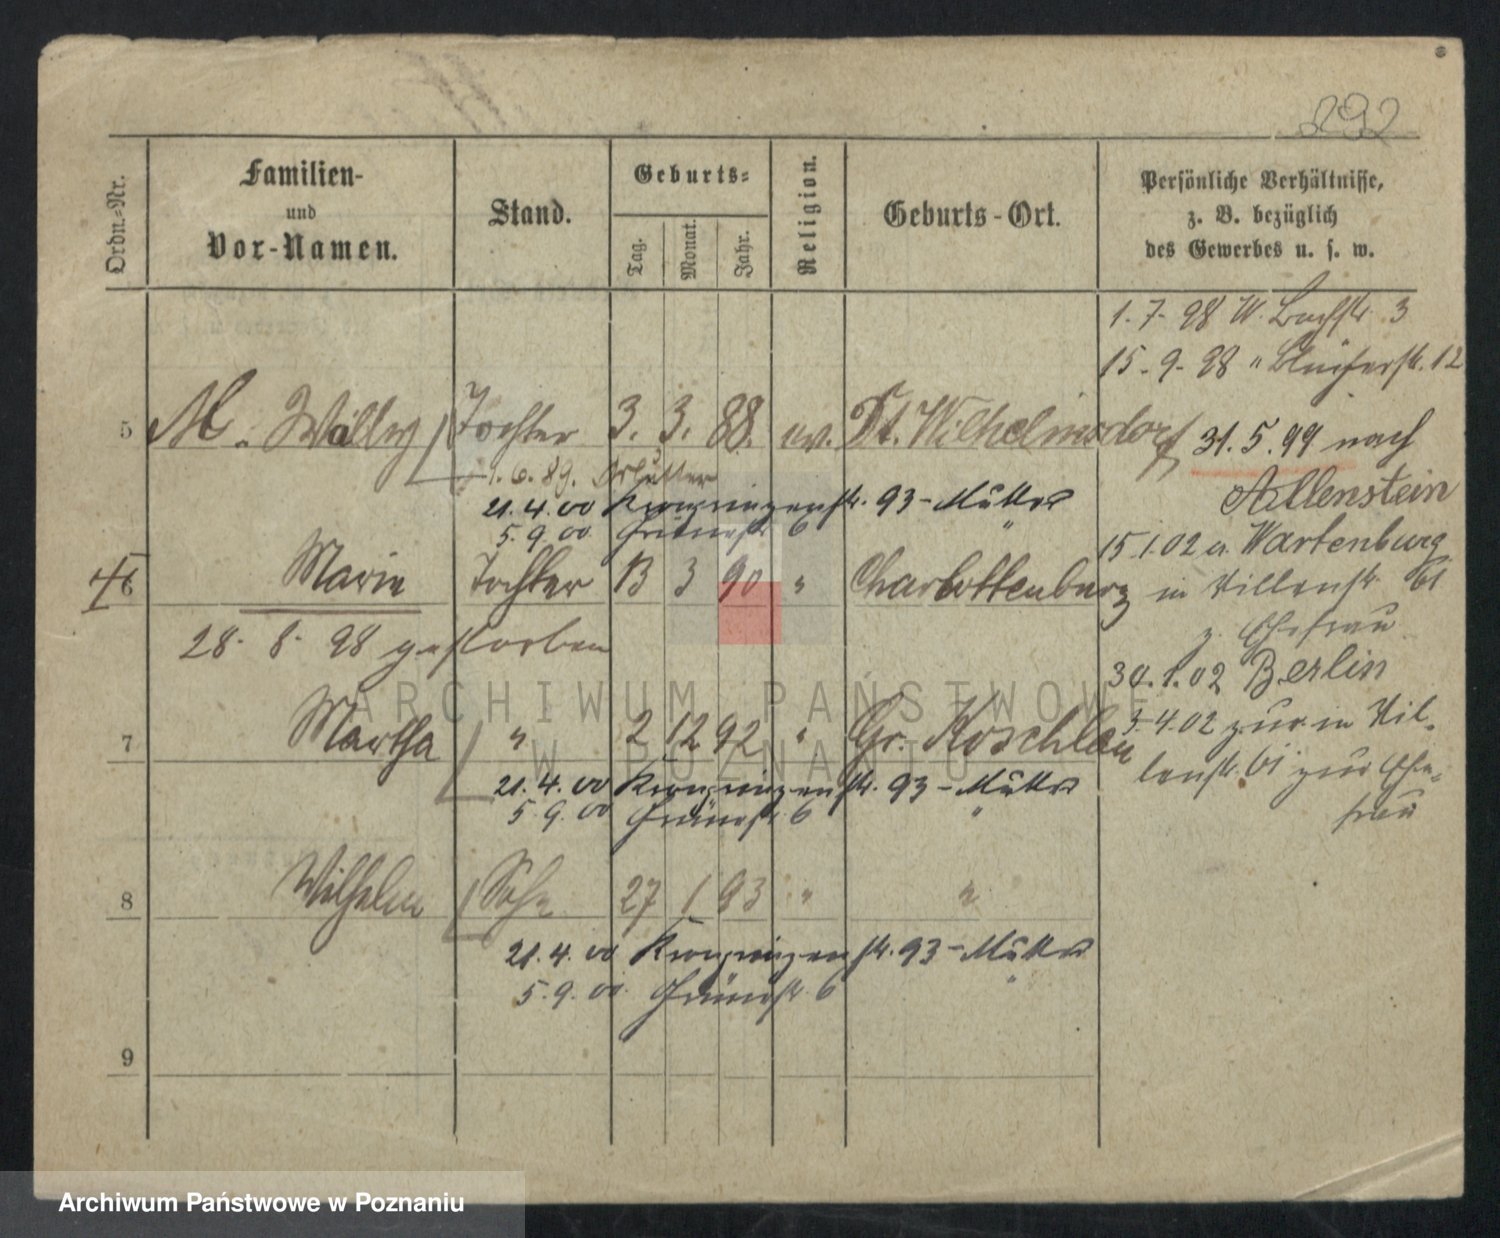 292
Ordn.-Nr.
Familien-
und
Vor-Namen.
Stand.
Geburts-
Tag.
Monat.
Jahr.
Religion.
Geburts-Ort.
Persönliche Verhältnisse,
z. B. bezüglich
des Gewerbes u. s. w.
1. 7. 98 W. Bachstr. 3
15. 9. 98 " Blücherstr. 12
5 M. Wally Tochter 3. 3. 88. ev. Dt. Wilhelmsdorf
31. 5. 99 nach
Allenstein
1. 6. 89.
21. 4. 00 Kronprinzenstr. 93 - Mutter
5. 9. 00 Grünestr. 6 "
15.1.02 a. Wartenburg
6 Marie Tochter 13 3 90 " Charlottenburg
in Villenstr. 61
z. Ehefrau
28. 8. 98 gestorben
30. 1. 02 Berlin
7 Martha " 2 12 92 " Gr. Koschlau
3. 4. 02 zur. in Vil-
lenstr. 61 zur Ehe-
frau
21. 4. 00 Kronprinzenstr. 93 - Mutter
5. 9. 00 Grünestr. 6 "
8 Wilhelm Sohn 27 1 93 " "
21. 4. 00 Kronprinzenstr. 93 - Mutter
5. 9. 00 Grünestr. 6 "
9
ARCHIWUM PAŃSTWOWE
W POZNANIU
Archiwum Państwowe w Poznaniu